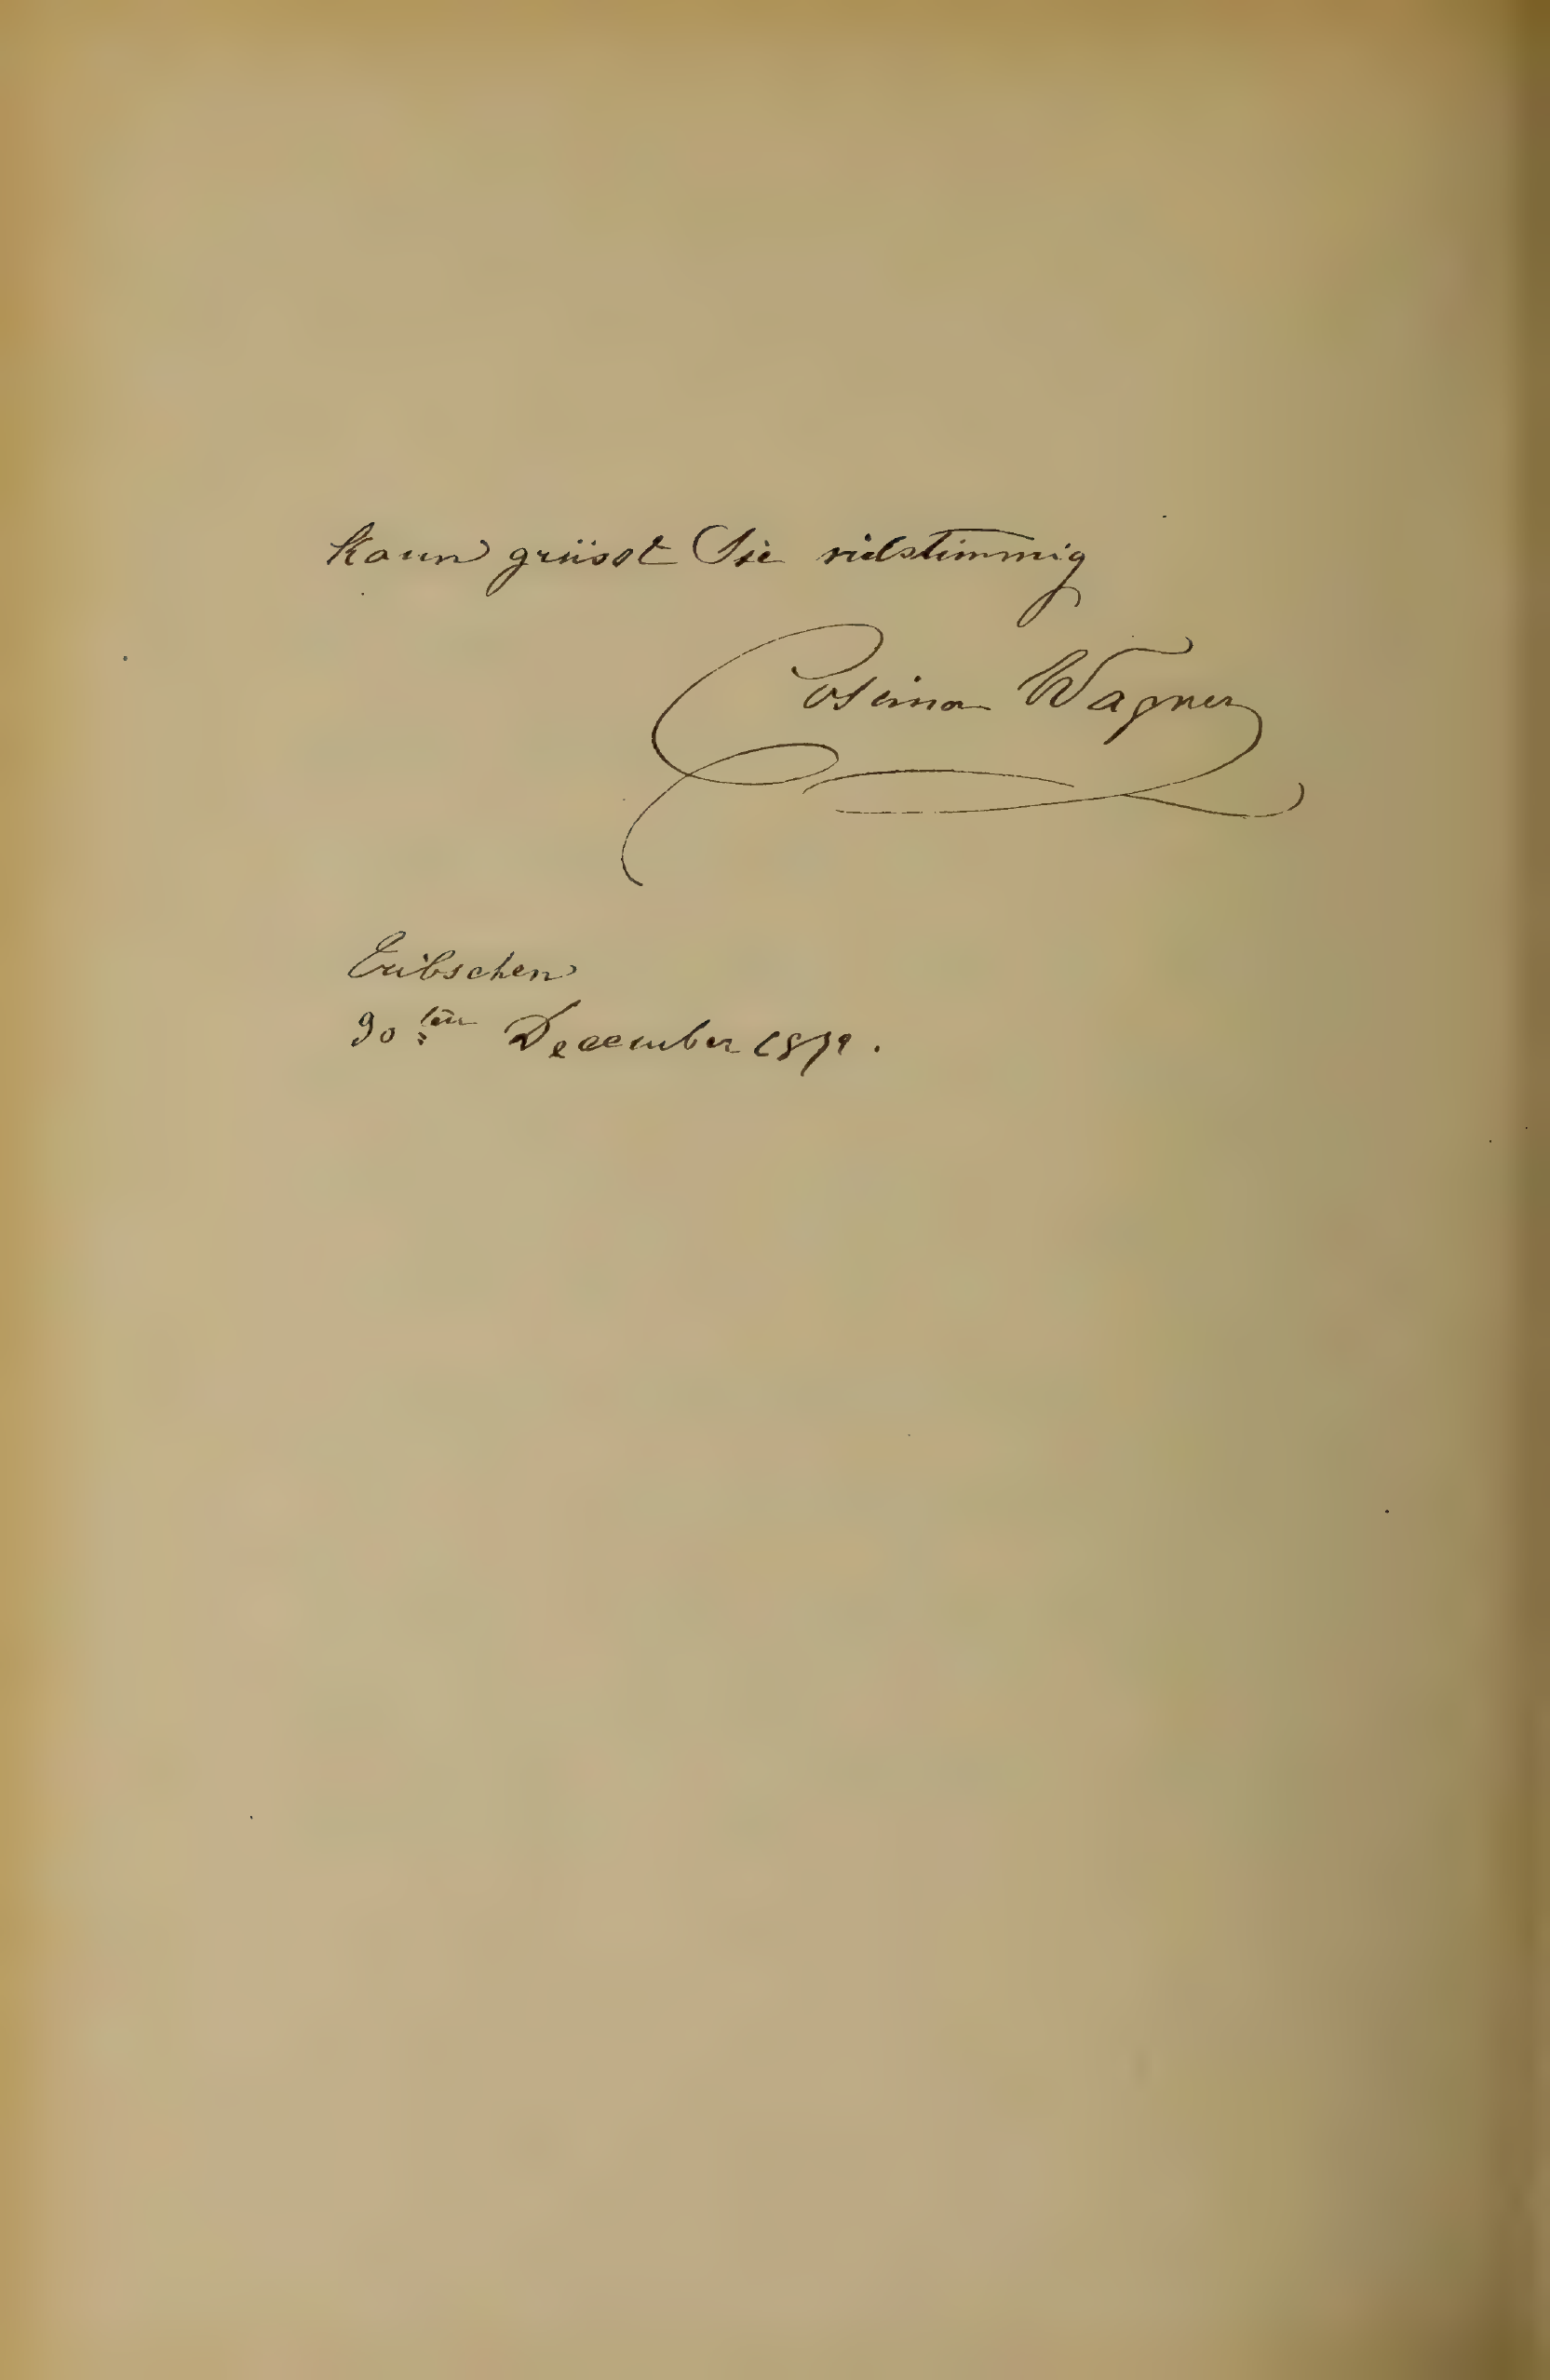 kann grüsst Sie vielstimmig
Cosima Wagner
Tribschen
30ten December 1871.